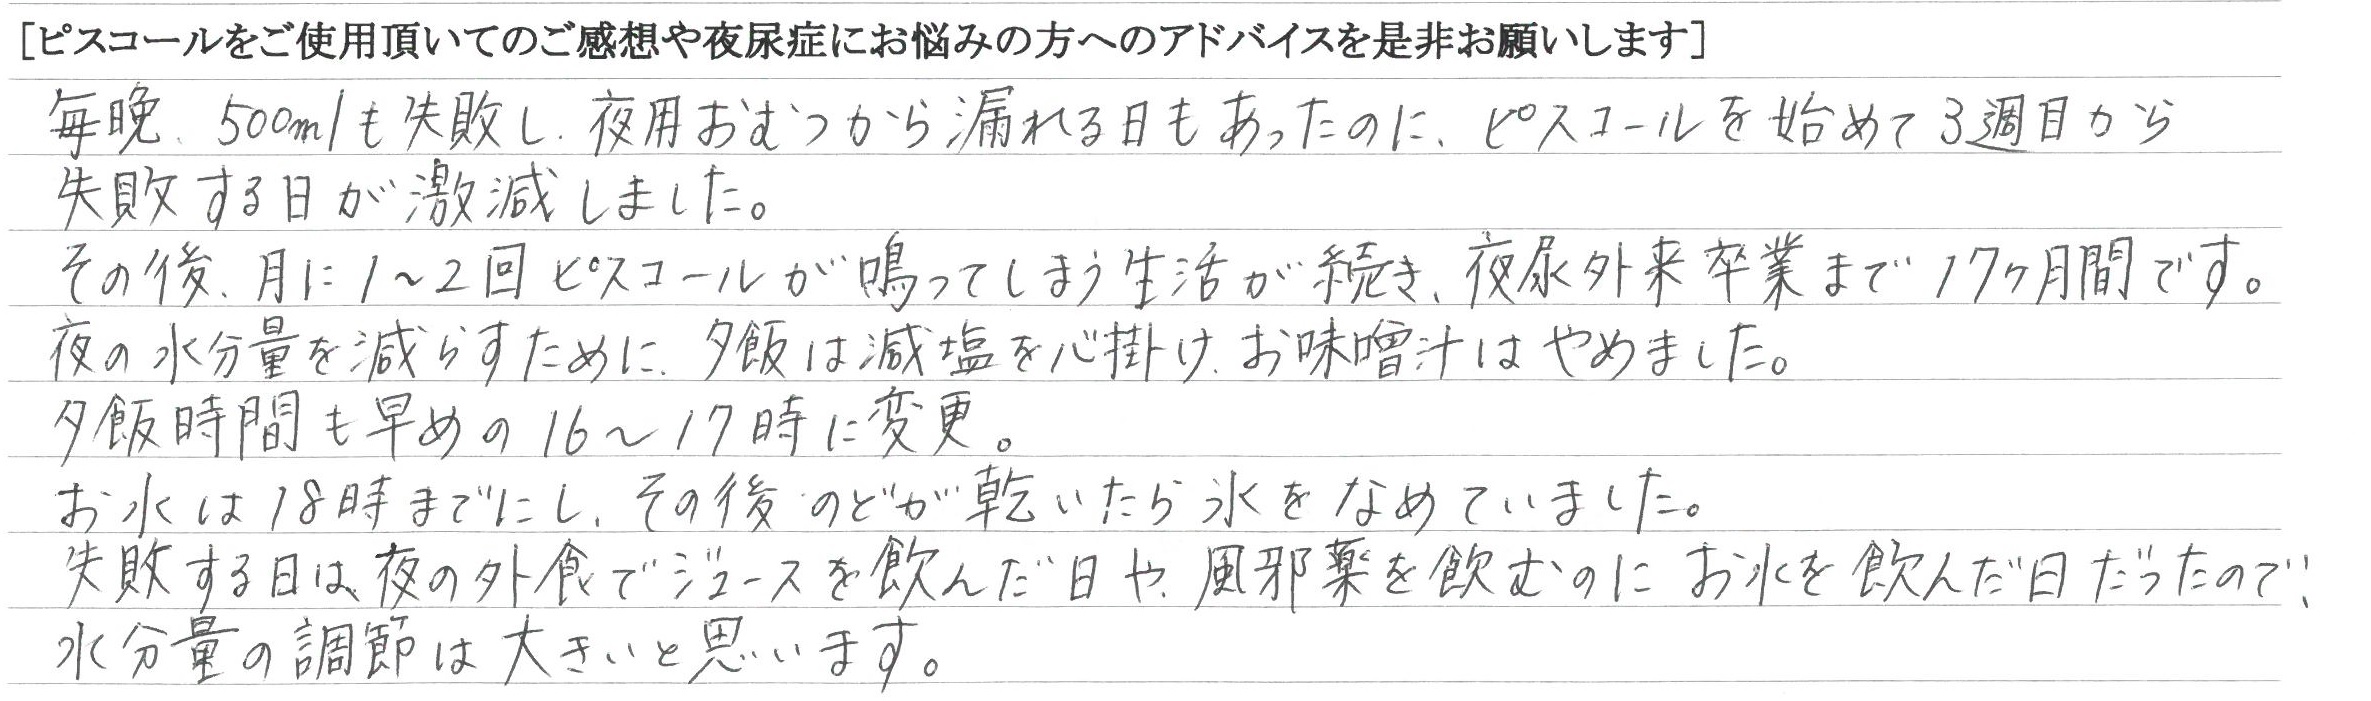 [ピスコールをご使用頂いてのご感想や夜尿症にお悩みの方へのアドバイスを是非お願いします]
毎晩、500mlも失敗し、夜用おむつから漏れる日もあったのに、ピスコールを始めて3週目から
失敗する日が激減しました。
その後、月に1～2回ピスコールが鳴ってしまう生活が続き、夜尿外来卒業まで17ヶ月間です。
夜の水分量を減らすために、夕飯は減塩を心掛け、お味噌汁はやめました。
夕飯時間も早めの16～17時に変更。
お水は18時までにし、その後のどが乾いたら氷をなめていました。
失敗する日は、夜の外食でジュースを飲んだ日や、風邪薬を飲むのにお水を飲んだ日だったので、
水分量の調節は大きいと思います。